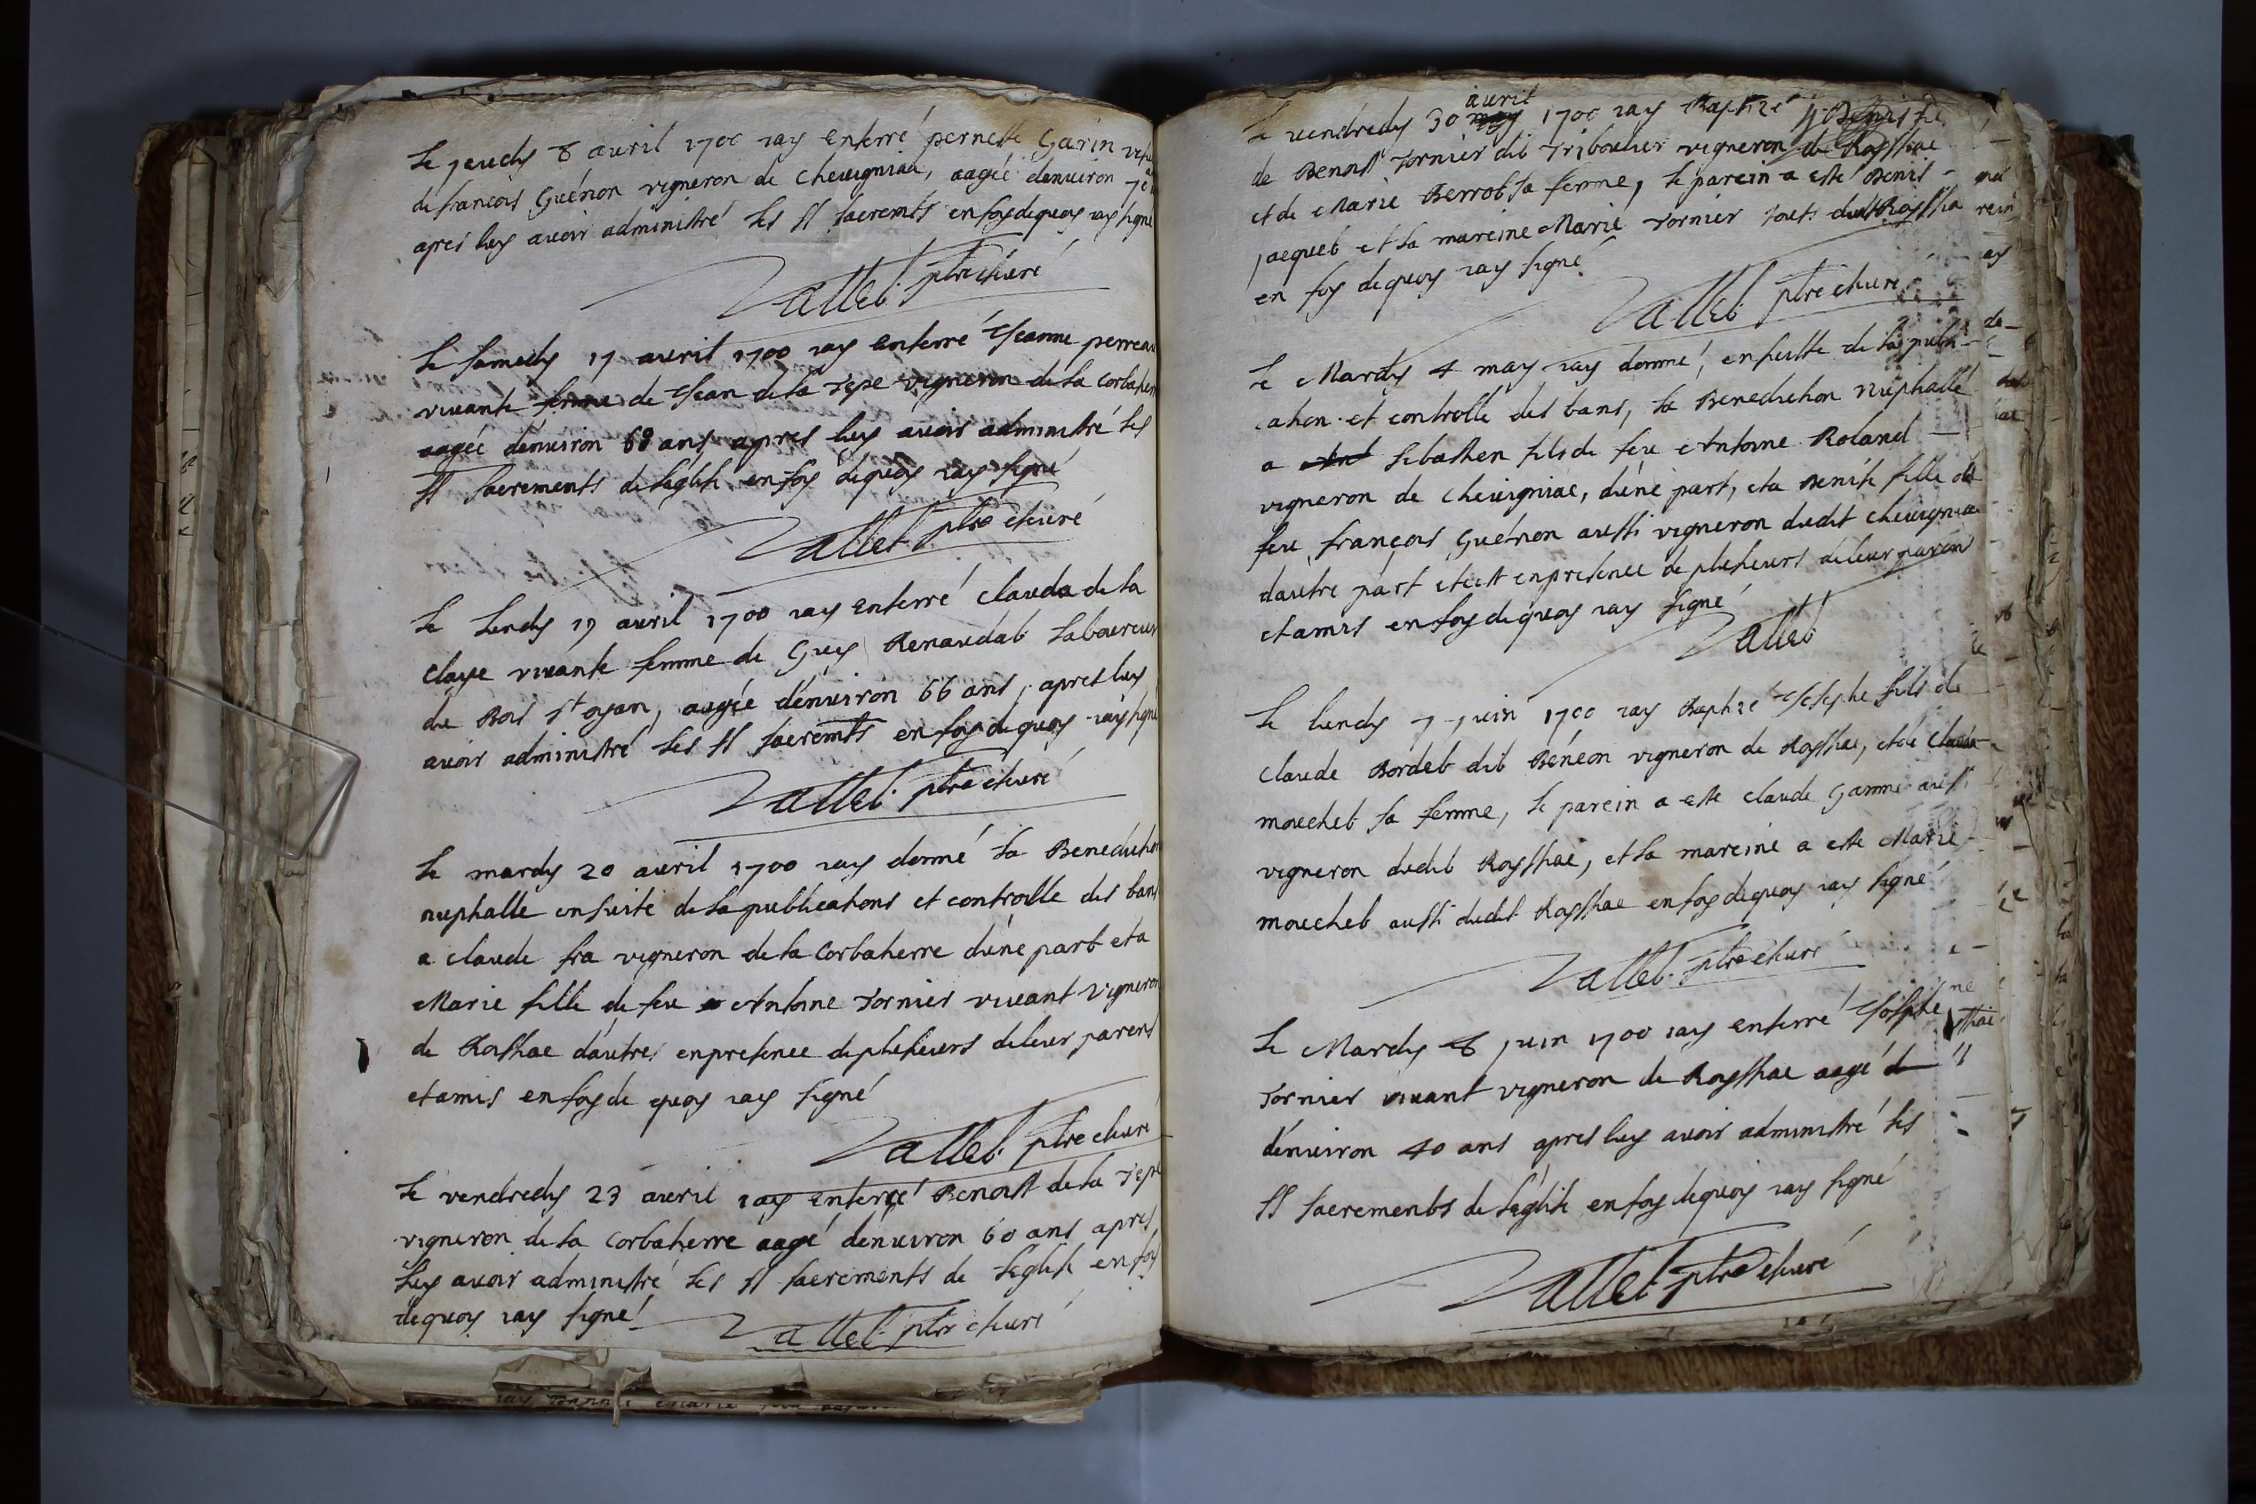 le jeudy 8 avril 1700 iay enterré pernette Garin
de françois Guénon vigneron de cheuigniac, aagée denuiron
apres luy auoir administré les SS sacremts en foy de quoy iay signé
Vallet ptre et curé
le samedy 17 avril 1700 iay enterré Jeanne
viuante femme de Jean de la Tepe vigneron de la Corbaherre
aagée denuiron 68 ans, apres luy auoir administré les
SS sacrements de leglise en foy de quoy iay signé
Vallet ptre et curé
le lundy 19 avril 1700 iay enterré clauda de la
claye viuante femme de Guy Renaudat laboureur
du Bois st oyan, aagée denuiron 66 ans, apres luy
auoir administré les SS sacremts en foy de quoy iay signé
Vallet ptre et curé
le mardy 20 avril 1700 iay donné la Benediction
nuptialle ensuite de la publications et controlle des bans
a claude fra vigneron de la Corbaherre dune part et a
Marie fille de feu Antoine Tornier viuant vigneron
de Rosthae dautre, en presence de plusieurs de leur parens
et amis en foy de quoy iay signé
Vallet ptre et curé
le vendredy 23 avril iay enterré Benoist de la Tepe
vigneron de la Corbaherre aagé denuiron 60 ans apres
luy auoir administré les SS sacrements de leglise en foy
de quoy iay signé
Vallet ptre et curé
le vendredy 30 avril 1700 iay Baptizé
de Benoist Tornier dit Triboulier vigneron de Roysthae
et de Marie Berrot sa femme, le parein a esté Denis
jaquet et la mareine Marie Tornier touts dudt Roystha
en foy de quoy iay signé
Vallet ptre et curé
le Mardy 4 may iay donné, ensuitte de la publi-
cation et controlle des bans, la Benediction nuptialle
a sebastien fils de feu Antoine Roland
vigneron de cheuigniae, dune part, et a Benite fille de
feu françois Guénon aussi vigneron dudit cheuigniae
dautre part et ce en presence de plusieurs de leur parens
et amis en foy de quoy iay signé
Vallet
le lundy 7 juin 1700 iay Baptizé Josephe fils de
claude Bordet dit Bénéon vigneron de Roysthae, et de clauda
mouchet sa femme, le parein a esté claude Gamme aussi
vigneron dudit Roysthae, et la mareine a esté Marie
mouchet aussi dudit Roysthae en foy de quoy iay signé
Vallet ptre et curé
le Mardy 8 juin 1700 iay enterré Josephe
Tornier viuant vigneron de Roysthae aagé
denuiron 40 ans apres luy auoir administré les
SS sacrements de leglise en foy de quoy iay signé
Vallet ptre et curé